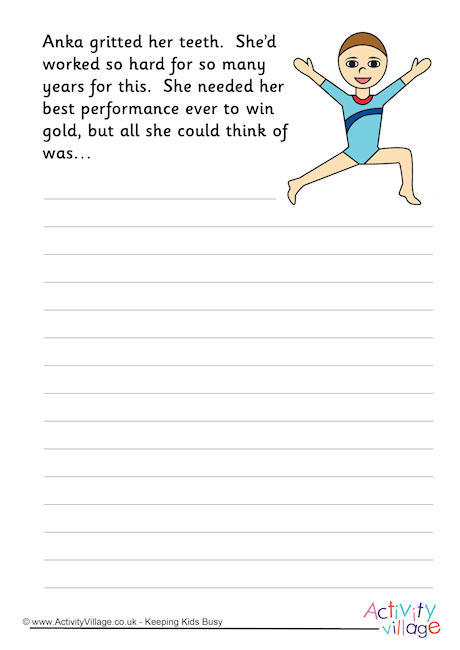 Anka gritted her teeth.  She'd
worked so hard for so many
years for this.  She needed her
best performance ever to win
gold, but all she could think of
was...
© www.ActivityVillage.co.uk - Keeping Kids Busy
Activity
village